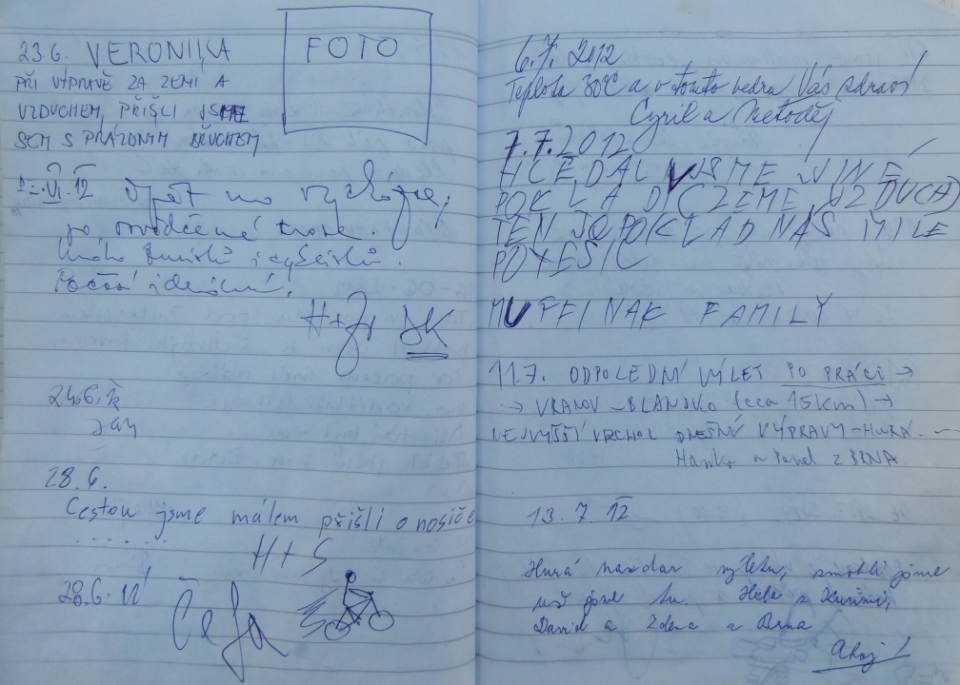 23.6. VERONIKA
FOTO
PŘI VÝPRAVĚ ZA ZEMÍ A
VZDUCHEM, PŘIŠLI JSME
SEM S PRÁZDNÝM BŘUCHEM
VI. 12 Opět na
po osvědčené trase.
Mnoho turistů i cyklistů.
Počasí ideální!
H+Jr JK
24.6.12
Jan
28.6.
Cestou jsme málem přišli o nosiče
.......
H+S
28.6.12
Čefa
6.7.2012
Teplota 30°C a v tomto vedru Vás zdraví
Cyril a Metoděj
7.7.2012
HLEDALI JSME JINÉ
POKLADY (ZEMĚ, VZDUCH)
TEN POKLAD NÁS MILE
POTĚŠIL
MUFFINAK FAMILY
11.7. ODPOLEDNÍ VÝLET PO PRÁCI →
→ VRANOV – BLANSKO (cca 15km) →
NEJVYŠŠÍ VRCHOL DNEŠNÍ VÝPRAVY – HURÁ.
Hanka a Pavel z BRNA
13.7.12
Hurá nazdar výletu, jsme
už jsme tu. z Kuřimi,
David a Zdena z Brna
Ahoj!